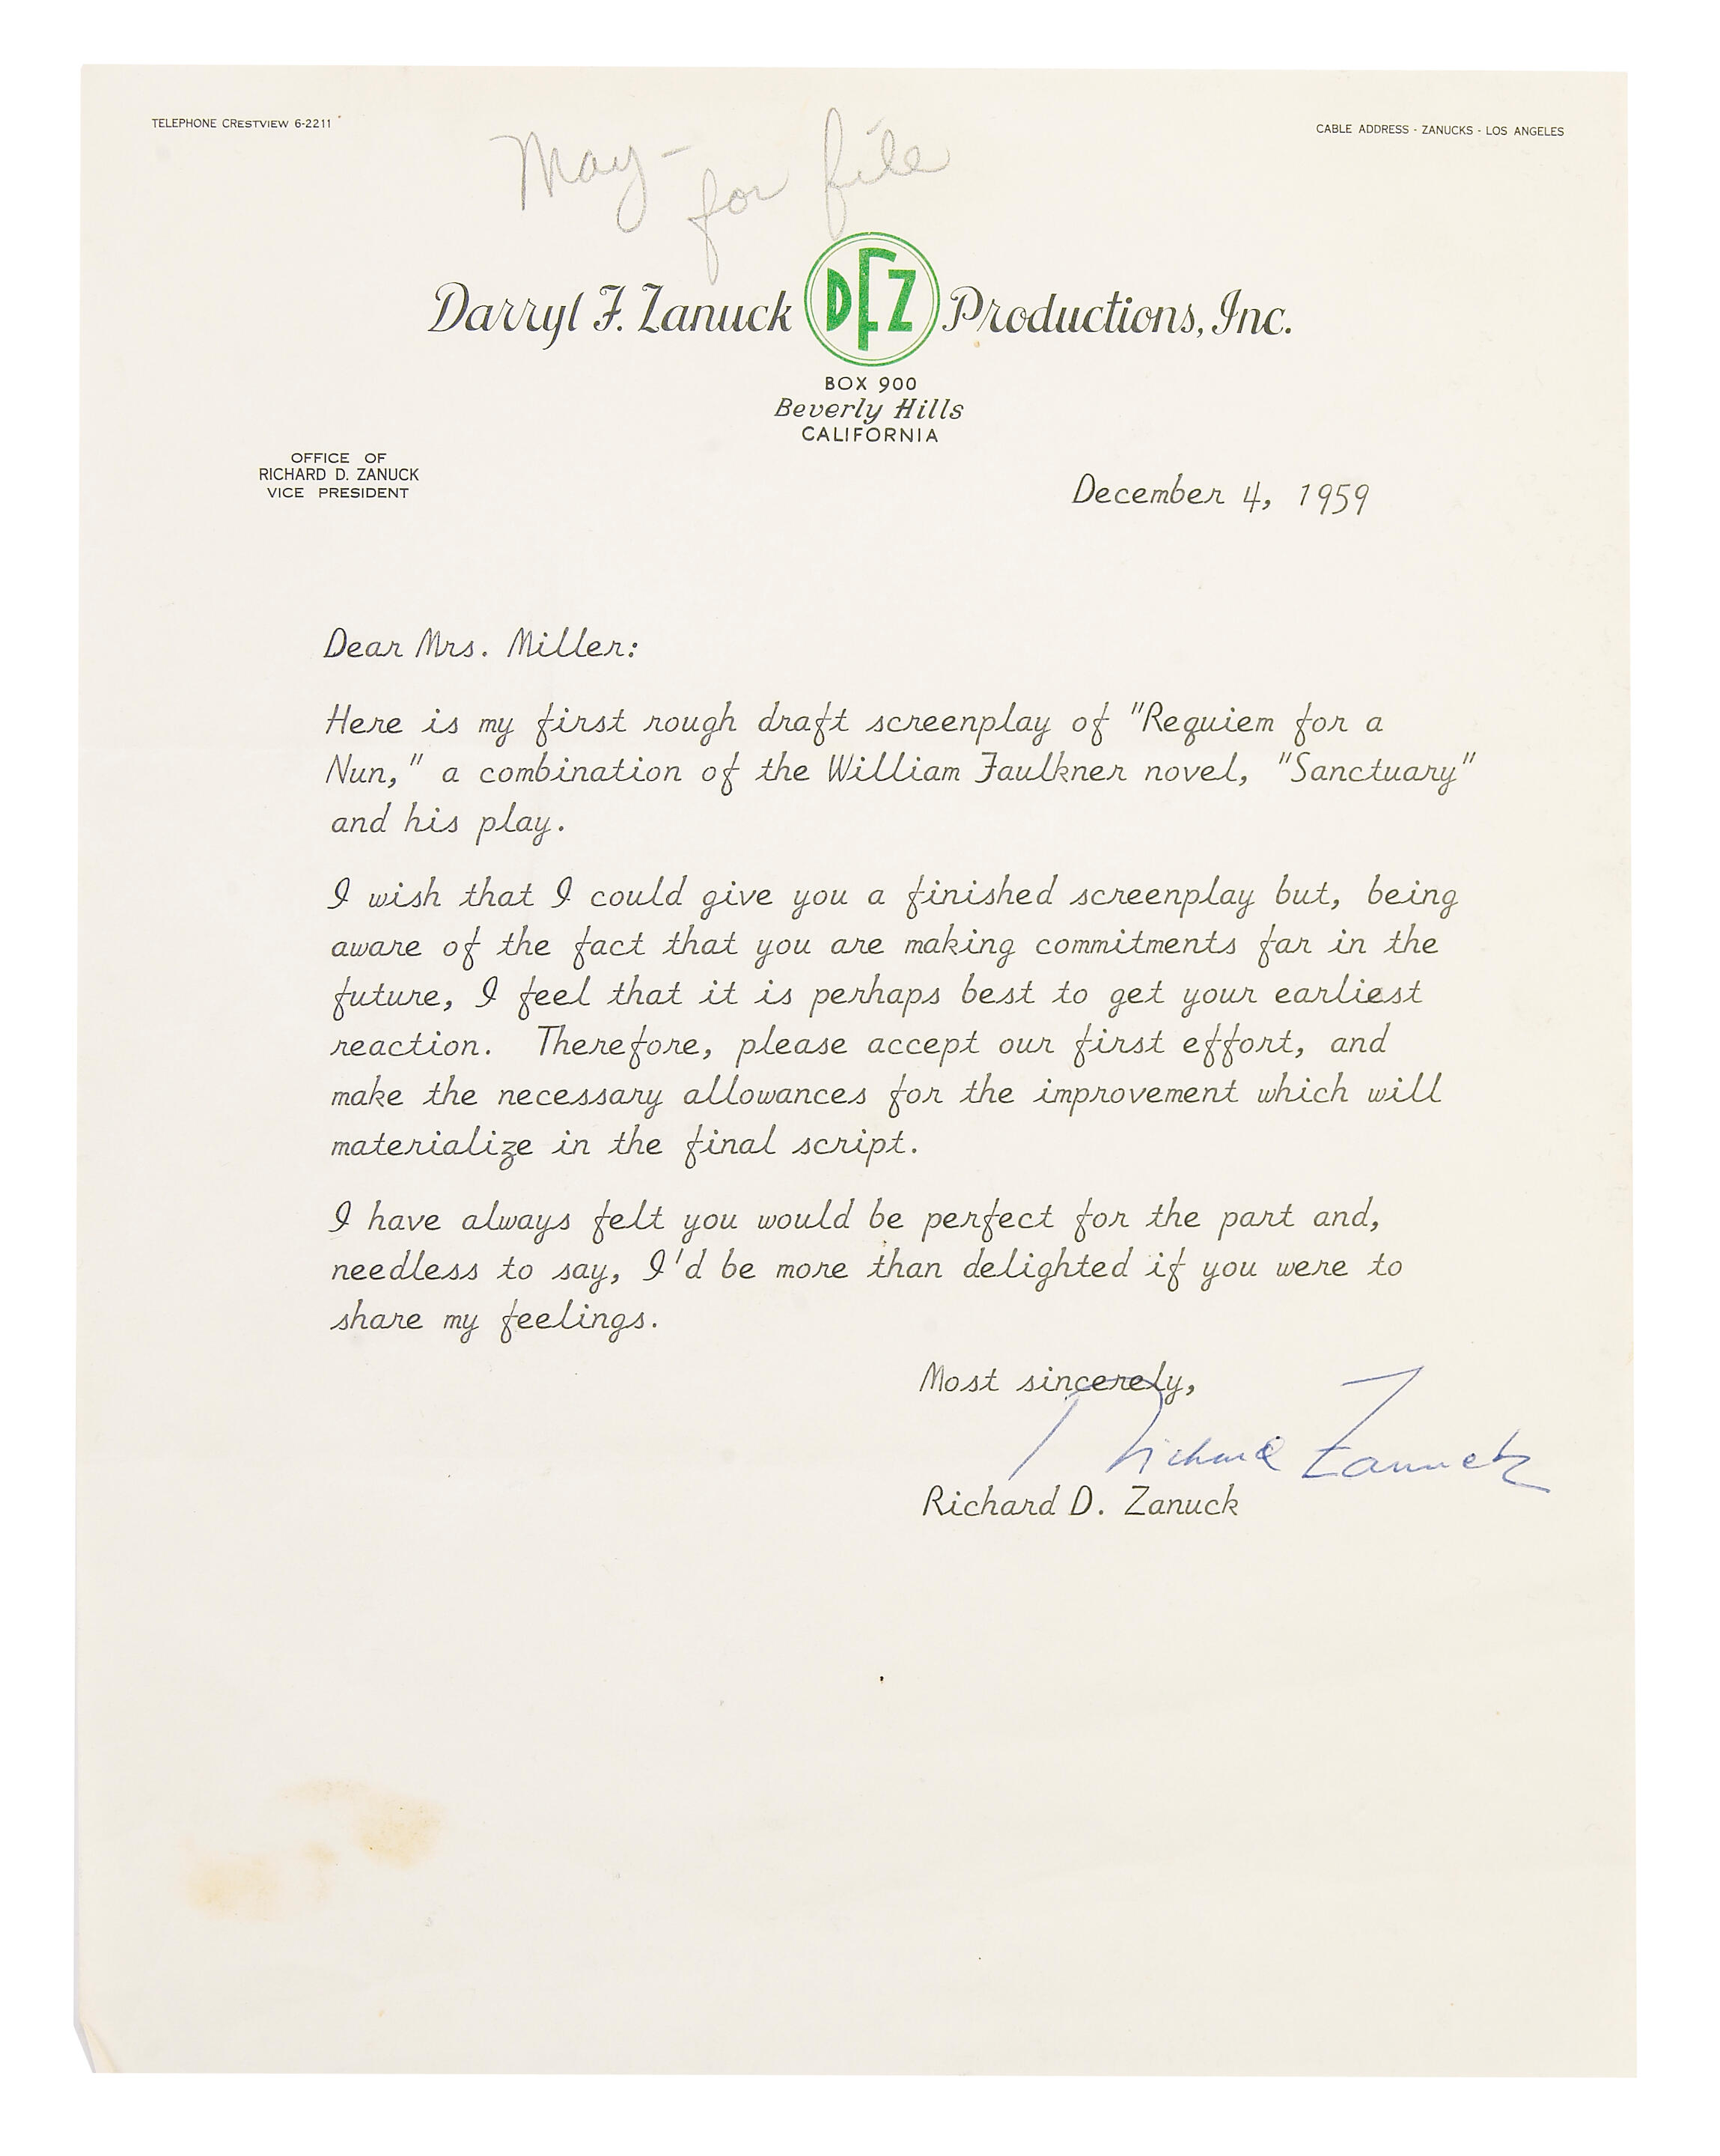 TELEPHONE CRESTVIEW 6-2211
CABLE ADDRESS - ZANUCKS - LOS ANGELES
May -
for file
Darryl F. Zanuck DFZ Productions, Inc.
BOX 900
Beverly Hills
CALIFORNIA
OFFICE OF
RICHARD D. ZANUCK
VICE PRESIDENT
December 4, 1959
Dear Mrs. Miller:
Here is my first rough draft screenplay of "Requiem for a
Nun," a combination of the William Faulkner novel, "Sanctuary"
and his play.
I wish that I could give you a finished screenplay but, being
aware of the fact that you are making commitments far in the
future, I feel that it is perhaps best to get your earliest
reaction. Therefore, please accept our first effort, and
make the necessary allowances for the improvement which will
materialize in the final script.
I have always felt you would be perfect for the part and,
needless to say, I'd be more than delighted if you were to
share my feelings.
Most sincerely,
Richard Zanuck
Richard D. Zanuck